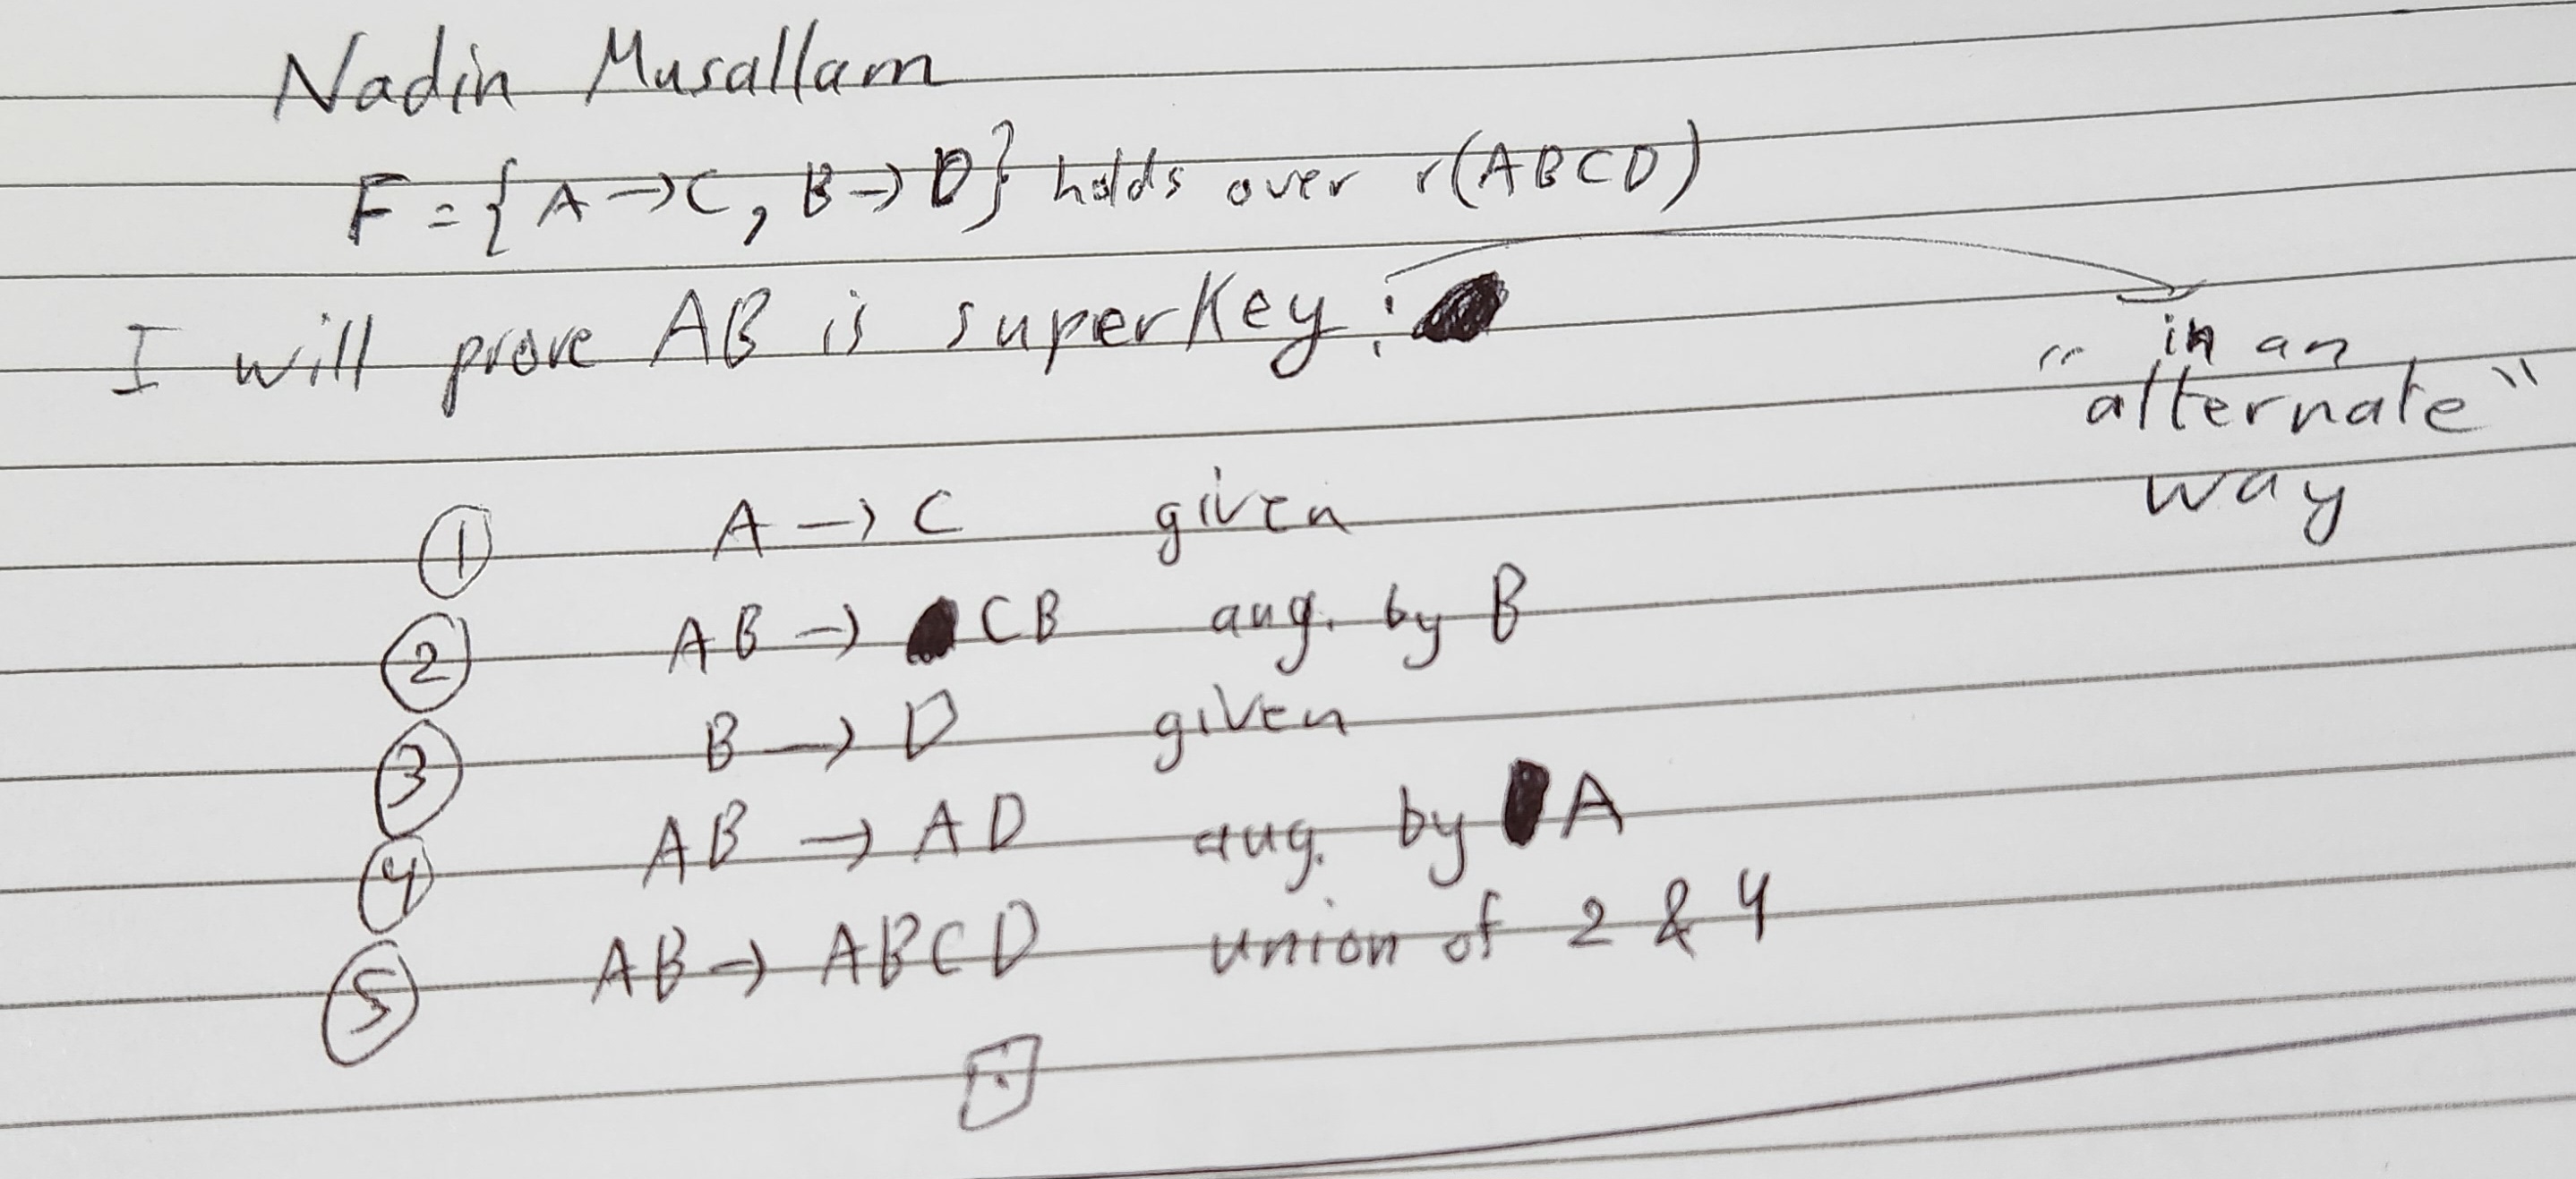 Nadin Musallam
F = { A → C, B → D } holds over r(ABCD)
I will prove AB is superkey :
" in an
alternate "
way
① A → C given
② AB → CB aug. by B
③ B → D given
④ AB → AD aug. by A
⑤ AB → ABCD union of 2 & 4